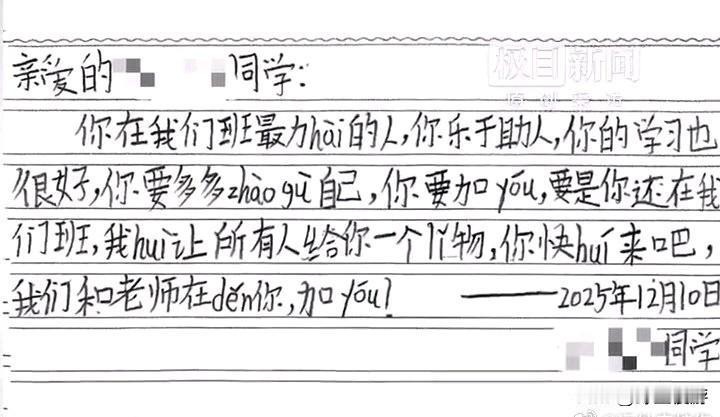 极目新闻
亲爱的 同学:
你在我们班最力hài的人,你乐于助人,你的学习也
很好,你要多多zhào gù自己,你要加yóu,要是你还在我
们班,我huì让所有人给你一个lǐ物,你快huí来吧,
我们和老师在děn你,加yóu!——2025年12月10日
同学